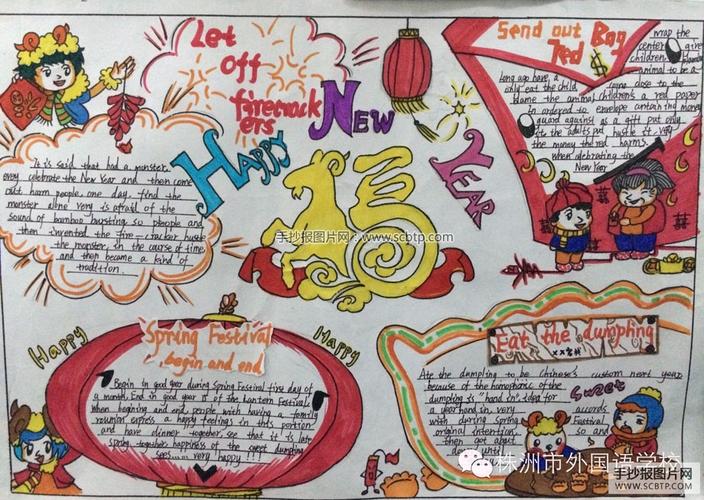 Let
Off
firecrack
ers
HAPPY
NEW
YEAR
福
手抄报图片网:www.scbtp.com
Send out
Red Bag
$
long ago have a
only eat the child
blame the animal
in ordered to
guard against as a gift put only
it the adults put hustle it very
the money the red harms
when celebrating the
New Year
map the
center give
children
animal to be a
come close to the
children's a red paper
envelope containing money
It is said that had a monster,
every celebrate the New Year and then come
out harm people one day, find the
monster alone very is afraid of the
sound of bamboo bursting so people and
then invented the fire-cracker hustle
the monster, in the course of time
and then became a kind of
tradition
Happy
Happy
Spring Festival
begin and end
Begin in good year during Spring Festival fire day of
month. End in good year 15 of the Lantern Festival
When begining and end, people with having a family
reunion express a happy feelings in this portion
and have dinner together, see that it is late
Spring together happiness of the sweet dumpling
sees... very happy!!!
Eat the dumpling
Ate the dumpling to be Chinese's custom next year
because of the homophonic of the
dumpling is "hand in" idea for
a year hand in, very accords
with during Spring Festival
original intention, so and
then got about
down until
Sweet
株洲市外国语学校
手抄报图片网
WWW.SCBTP.COM